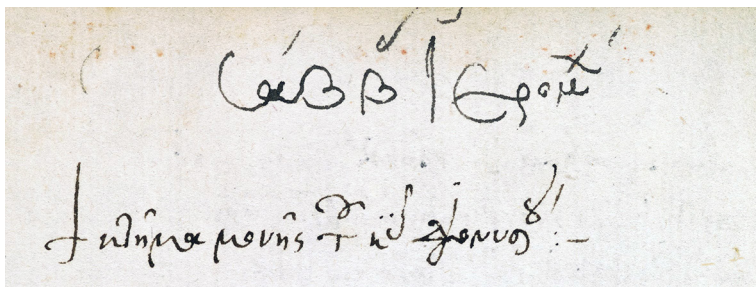 Σάββ ἱερομχ
+ κτῆμα μονῆς τ κυ διονυσ :-